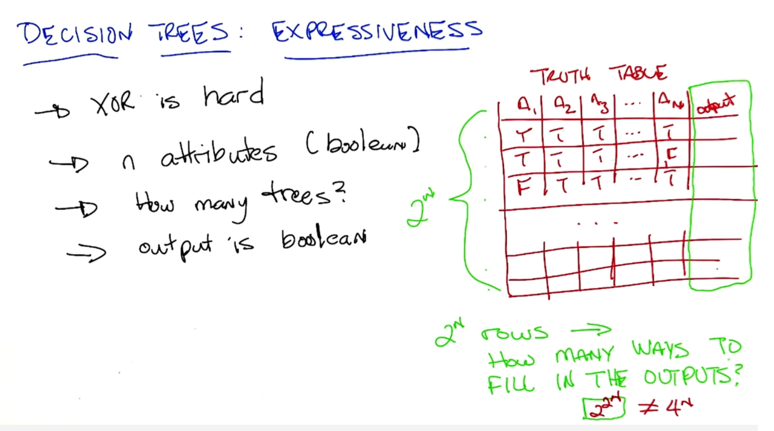 DECISION TREES: EXPRESSIVENESS
→ XOR is hard
→ n attributes (boolean)
→ How many trees?
→ output is boolean
TRUTH TABLE
A₁ A₂ A₃ ... Aₙ output
T T T ... T
T T T ... F
F T T ... T
2ᴺ
...
2ᴺ rows →
HOW MANY WAYS TO
FILL IN THE OUTPUTS?
2^2^N ≠ 4ᴺ